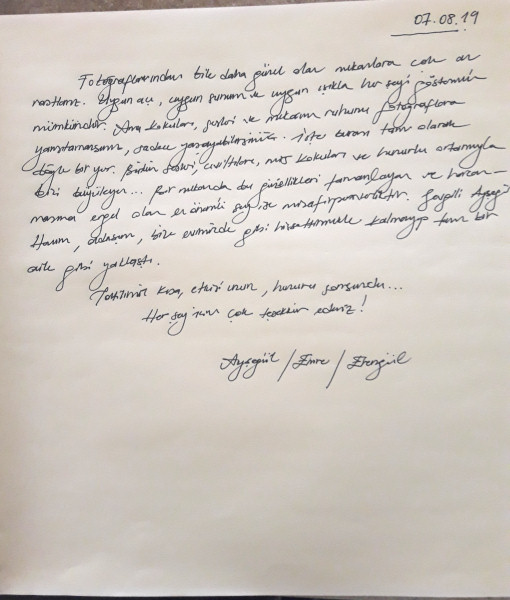 07.08.19
Fotoğraflarından bile daha güzel olan mekanlara çok az
rastlanır. Uygun açı, uygun sunum ve uygun ışıkla her şeyi göstermek
mümkündür. Ama kokuları, sesleri ve mekanın ruhunu fotoğraflara
yansıtamazsınız, sadece yaşayabilirsiniz. İşte burası tam olarak
böyle bir yer. Bütün sesleri, cıvıltıları, mis kokuları ve huzurlu ortamıyla
bizi büyüleyen... Bir mekanda bu güzellikleri tamamlayan ve
engel olan en önemli şey ise misafirperverliktir. Sevgili Ayşegül
Hanım, bize evimizde gibi hissettirmekle kalmayıp tam bir
aile gibi yaklaştı.
Tatilimiz kısa, etkisi uzun, huzuru sonsuzdu...
Her şey için çok teşekkür ederiz!
Ayşegül / Emre / Ezgigül